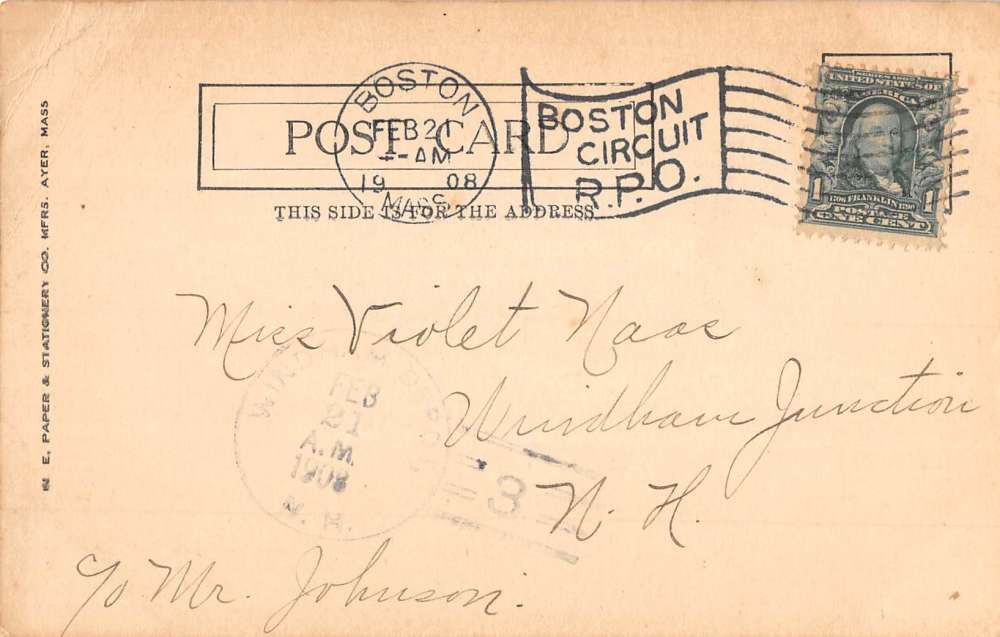 BOSTON
FEB 21
AM
19 08
MASS.
BOSTON
CIRCUIT
R.P.O.
POST CARD
THIS SIDE IS FOR THE ADDRESS.
UNITED STATES OF
AMERICA
1 1
1706 FRANKLIN 1790
POSTAGE
ONE CENT
E. PAPER & STATIONERY CO. MFRS. AYER, MASS
Miss Violet Naas
Windham Junction
N. H.
c/o Mr. Johnson.
FEB
21
A.M.
1908
N. H.
3